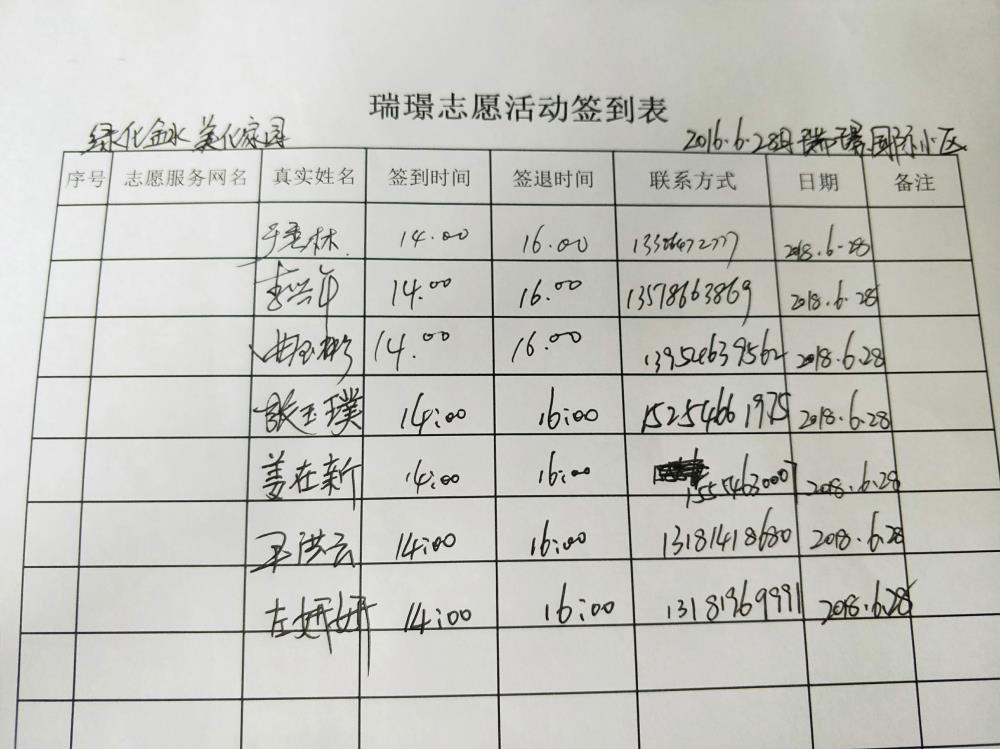 瑞璟志愿活动签到表
绿化金水 美化家园 2016.6.28日 瑞璟国际小区
序号 志愿服务网名 真实姓名 签到时间 签退时间 联系方式 日期 备注
14.00 16.00 2018.6-28
14.00 16.00 13578663869 2018.6.28
14.00 16.00 139524639562 2018.6.28
张玉璞 14:00 16:00 15254661975 2018.6.28
姜在新 14:00 16:00 15554630007 2018.6.28
王洪云 14:00 16:00 13181418680 2018.6.28
左妍妍 14:00 16:00 13181969991 2018.6.28